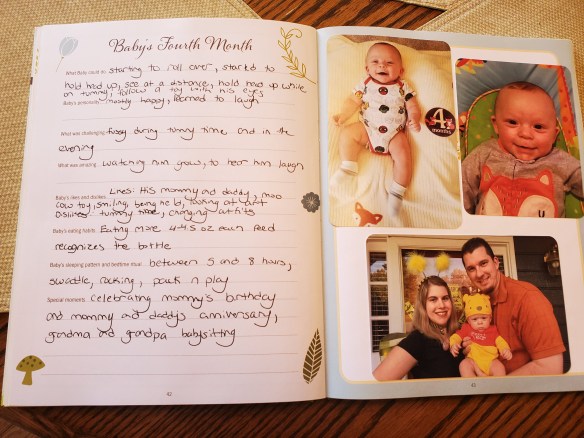 Baby's Fourth Month
What Baby could do starting to roll over, started to
hold head up, see at a distance, hold head up while
on tummy, follow a toy with his eyes
Baby's personality mostly happy, learned to laugh
What was challenging fussy during tummy time and in the
evening
What was amazing watching him grow, to hear him laugh
Baby's likes and dislikes Likes: His mommy and daddy, moo
cow toy, smiling, being held, looking at art
Dislikes: tummy time, changing outfits
Baby's eating habits Eating more 4-4.5 oz each feed
recognizes the bottle
Baby's sleeping pattern and bedtime ritual between 5 and 8 hours,
swaddle, rocking, pack n play
Special moments celebrating mommy's birthday
and mommy and daddy's anniversary,
grandma and grandpa babysitting
42
4
months
43